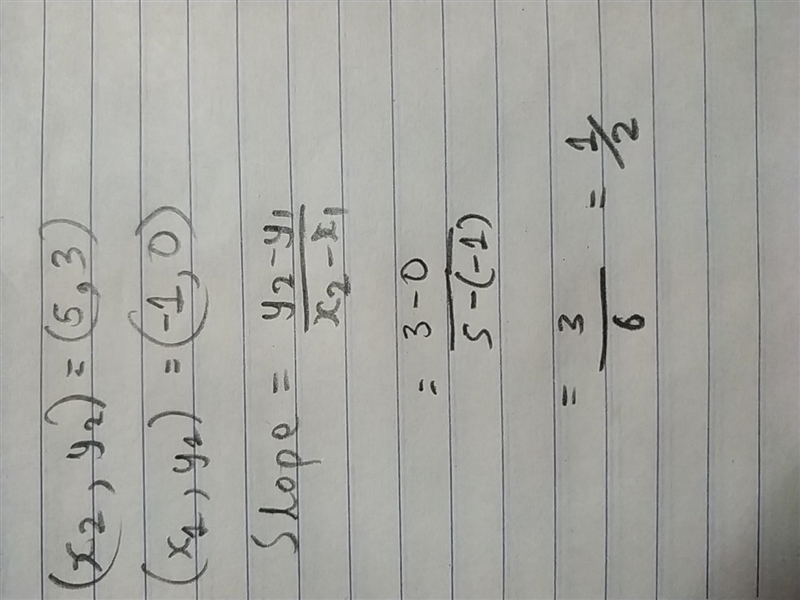 (x2, y2) = (5, 3)
(x1, y1) = (-1, 0)
Slope = y2 - y1 / x2 - x1
= 3 - 0 / 5 - (-1)
= 3 / 6 = 1/2